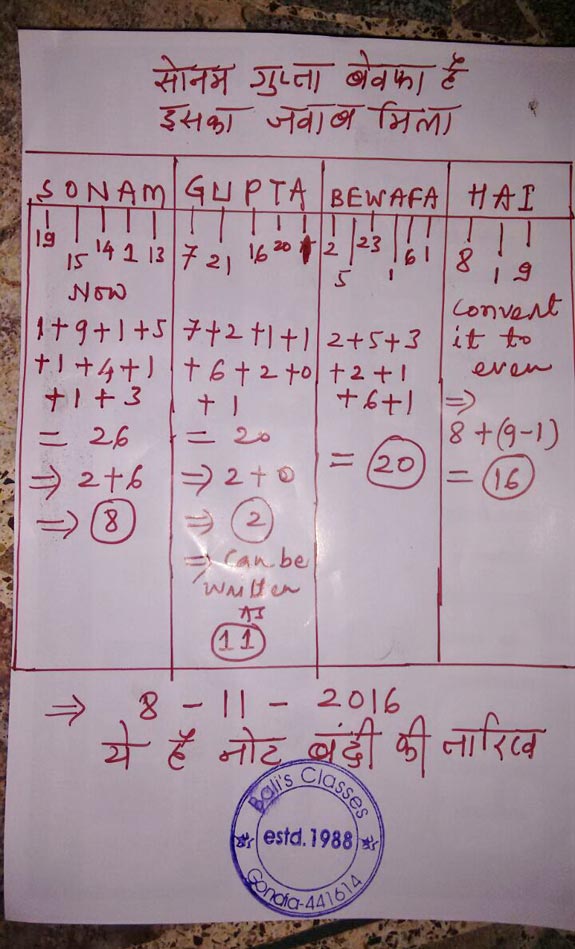 सोनम गुप्ता बेवफा है
इसका जवाब मिला
SONAM
19 15 14 1 13
NOW
1+9+1+5
+1+4+1
+1+3
= 26
⇒ 2+6
⇒ 8
GUPTA
7 21 16 20 1
7+2+1+1
+6+2+0
+1
= 20
⇒ 2+0
⇒ 2
⇒ can be
written
AS
11
BEWAFA
2 5 23 1 6 1
2+5+3
+2+1
+6+1
= 20
HAI
8 1 9
convert
it to
even
⇒
8+(9-1)
= 16
⇒ 8 - 11 - 2016
ये है नोट बंदी की तारिख
Bali's Classes
estd.1988
Gondia-441614